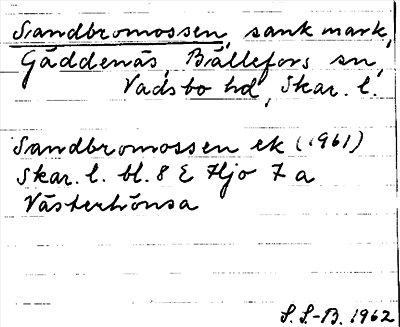 Sandbromossen, sank mark,
Gäddenäs, Bällefors sn,
Vadsbo hd, Skar. l.
Sandbromossen ek (1961)
Skar. l. bl. 8 E Hjo 7 a
Västerhönsa
S. S.-B. 1962